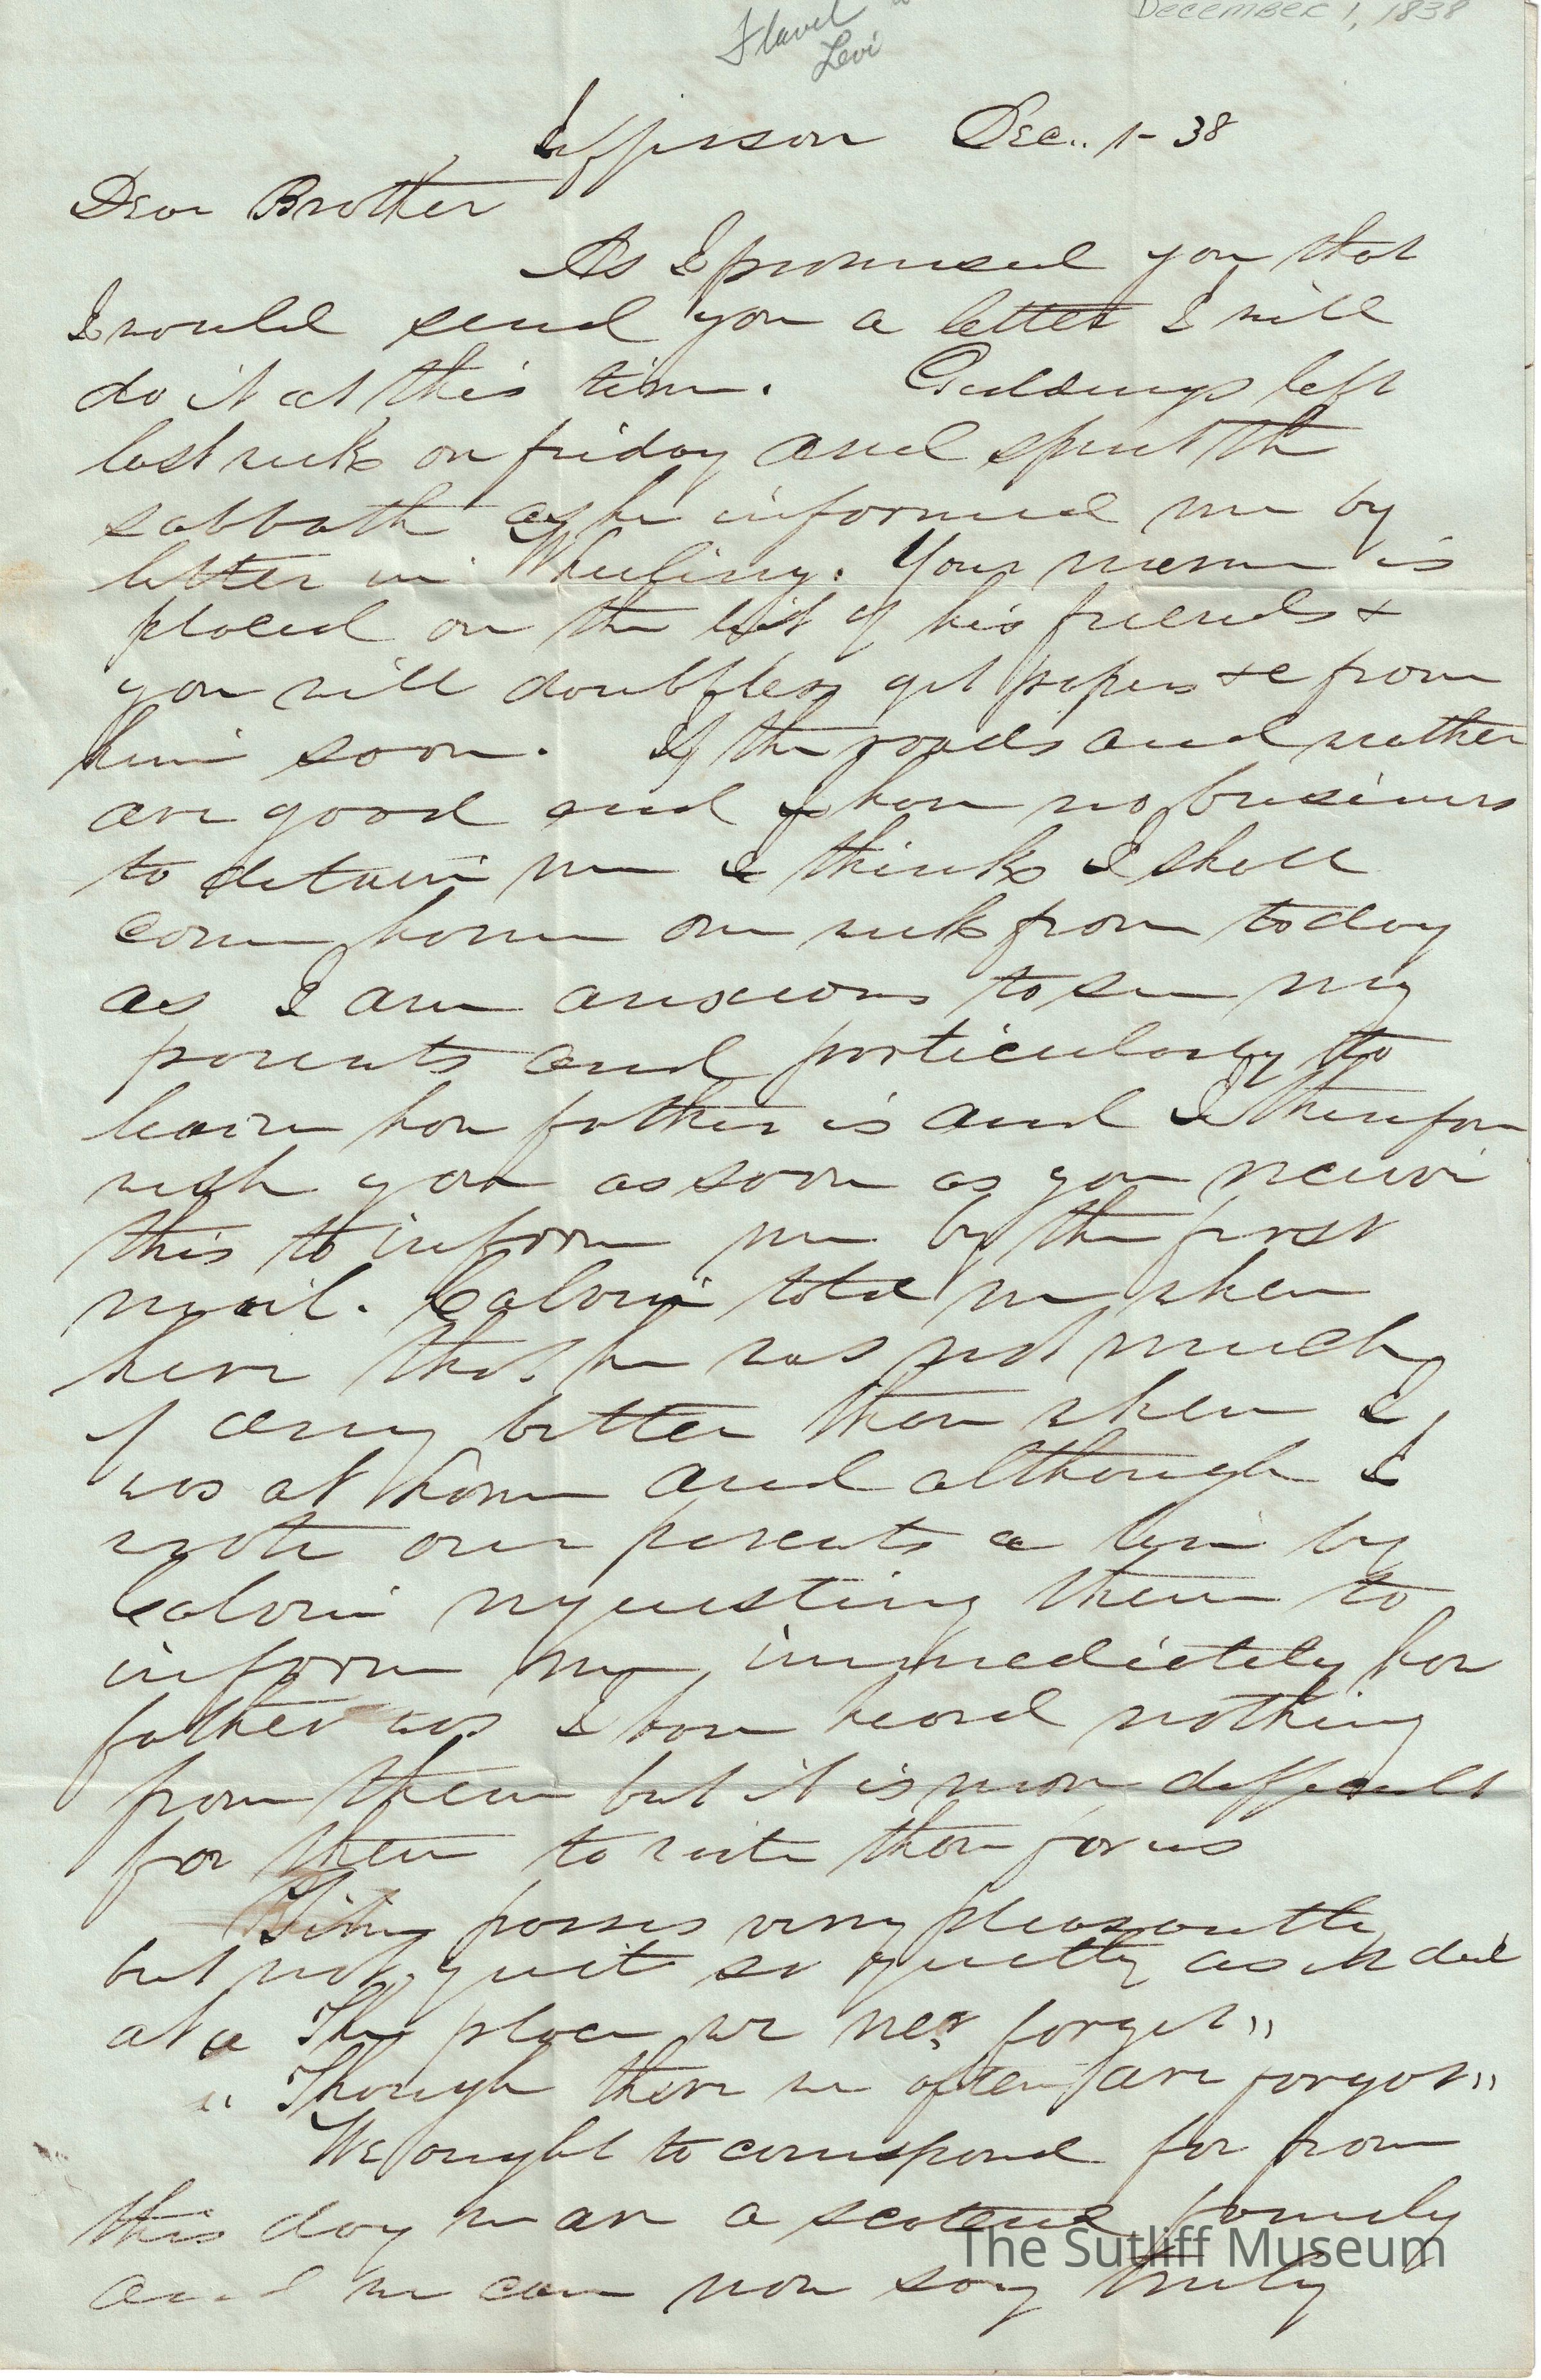 December 1, 1838
Flavel to
Levi
Jefferson Dec.. 1- 38
Dear Brother
As I promised you that
I would send you a letter I will
do it at this time. Giddings left
last week on friday and spent the
sabbath as he informed me by
letter in Wheeling. Your name is
placed on the list of his friends &
you will doubtless get papers &c from
him soon. If the roads and weather
are good and I have no business
to detain me I think I shall
come home one week from today
as I am anxious to see my
parents and particularly to
learn how father is and I therefore
wish you as soon as you receive
this to inform me by the first
mail. Calvin told me when
here that he was not much
if any better than when I
was at home and although I
wrote our parents a line by
Calvin requesting them to
inform me immediately how
father was I have heard nothing
from them but it is more difficult
for them to write than for us
Time passes very pleasantly
but not quite so quietly as it did
at a "The place we ne'er forget"
"Though there we often are forgot"
We ought to correspond for from
this day we are a scatered family
and we can now say truly
The Sutliff Museum